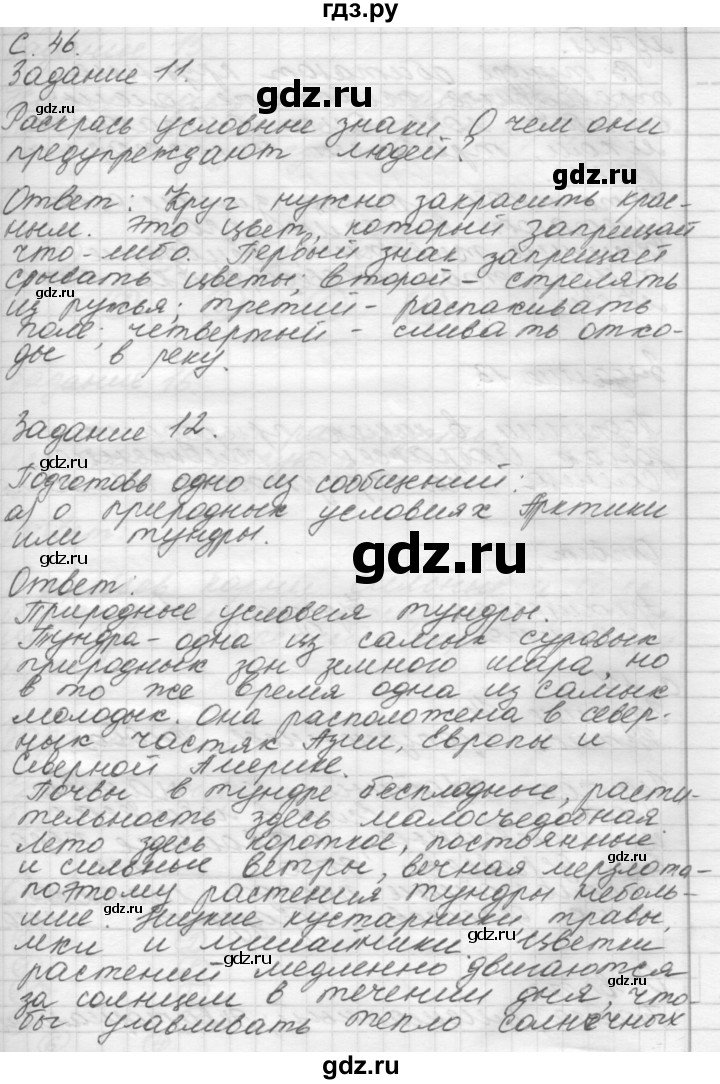 гдз.ру
С. 46.
Задание 11.
gdz.ru
gdz.ru
Раскрась условные знаки. О чем они
предупреждают людей?
gdz.ru
Ответ: Круг нужно закрасить крас-
ным. Это цвет, который запрещай
что-либо. Первый знак запрещает
срывать цветы; второй - стрелять
из ружья; третий - распахивать
поле; четвертый - сливать отхо-
ды в реку.
gdz.ru
gdz.ru
Задание 12.
gdz.ru
Подготовь одно из сообщений:
а) о природных условиях Арктики
или тундры.
gdz.ru
gdz.ru
Ответ:
Природные условия тундры.
Тундра - одна из самых суровых
природных зон земного шара, но
в то же время одна из самых
молодых. Она расположена в север-
ных частях Азии, Европы и
Северной Америке.
gdz.ru
Почвы в тундре бесплодные, расти-
тельность здесь малосъедобная
Лето здесь короткое, постоянные
и сильные ветры, вечная мерзлота-
поэтому растения тундры неболь-
шие. Низкие кустарники, травы,
мхи и лишайники. Цветки
растений медленно двигаются
за солнцем в течении дня, что-
бы улавливать тепло солнечных
gdz.ru
gdz.ru
gdz.ru
gdz.ru
gdz.ru
gdz.ru